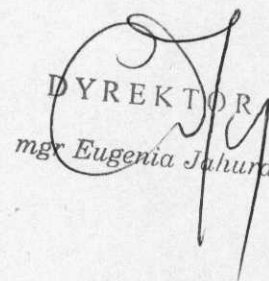 DYREKTOR
mgr Eugenia Jahura